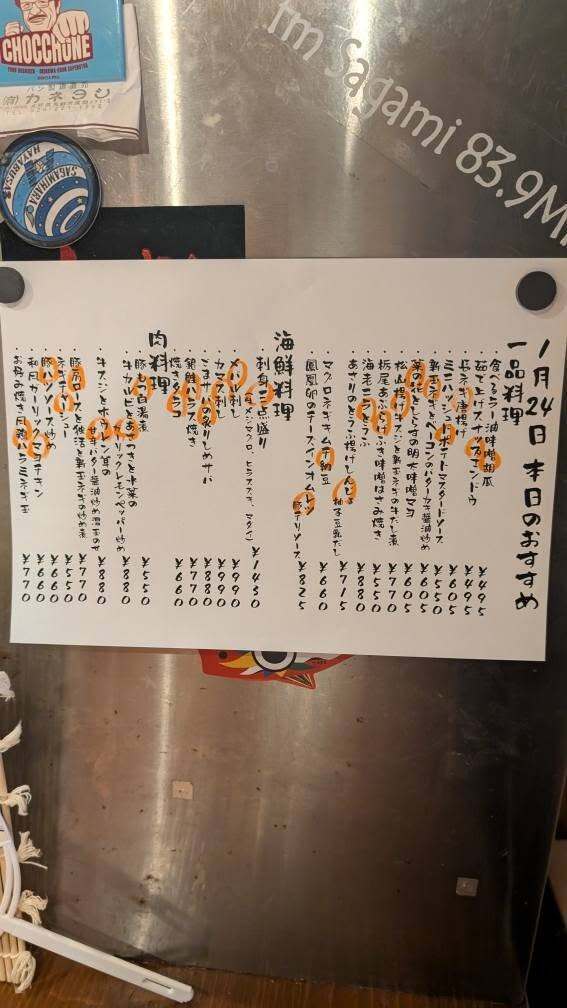 CHOCCRUNE
(有)カネヨシ
SAGAMIHARA
fm Sagami 83.9M
1月24日 本日のおすすめ
一品料理
・食べるラー油味噌胡瓜 ¥495
・茹で上げスナップエンドウ ¥495
・長ネギ唐揚げ ¥605
・ミニハッシュドポテトマスタードソース
・新玉ネギとベーコンのバターカキ醤油炒め ¥605
・菜の花としらすの明太味噌マヨ ¥550
・松山揚げ牛スジと新玉ネギの牛だし煮 ¥770
・栃尾あぶらげふき味噌はさみ焼き ¥550
・海老ニラ ¥880
・あさりのとうふ揚げしんじょ 柚子豆乳だし ¥715
・マグロネギキムチ納豆 ¥660
・鳳凰卵のチーズインオムレツ 豚テリソース ¥825
海鮮料理
・刺身三点盛り ¥1430
(生メジマグロ、ヒラスズキ、マダイ)
・〆刺し ¥990
・カマス刺し ¥990
・ごまサバの炙りしめサバ ¥880
・銀鮭ハラス焼き ¥770
・焼きタラコ ¥660
肉料理
・豚もつ白湯煮 ¥550
・牛カルビとあさつきと水菜の ガーリックレモンペッパー炒め ¥880
・牛スジとホウレン草の 牛バター醤油炒め温玉のせ ¥880
・豚肩ロースと独活と新玉ネギの炒め煮 ¥770
・ネギチャーシュー ¥550
・豚ハラミソース炒め ¥660
・和風ガーリックコブチキン ¥660
・お好み焼き風鶏ハラミネギ玉 ¥780